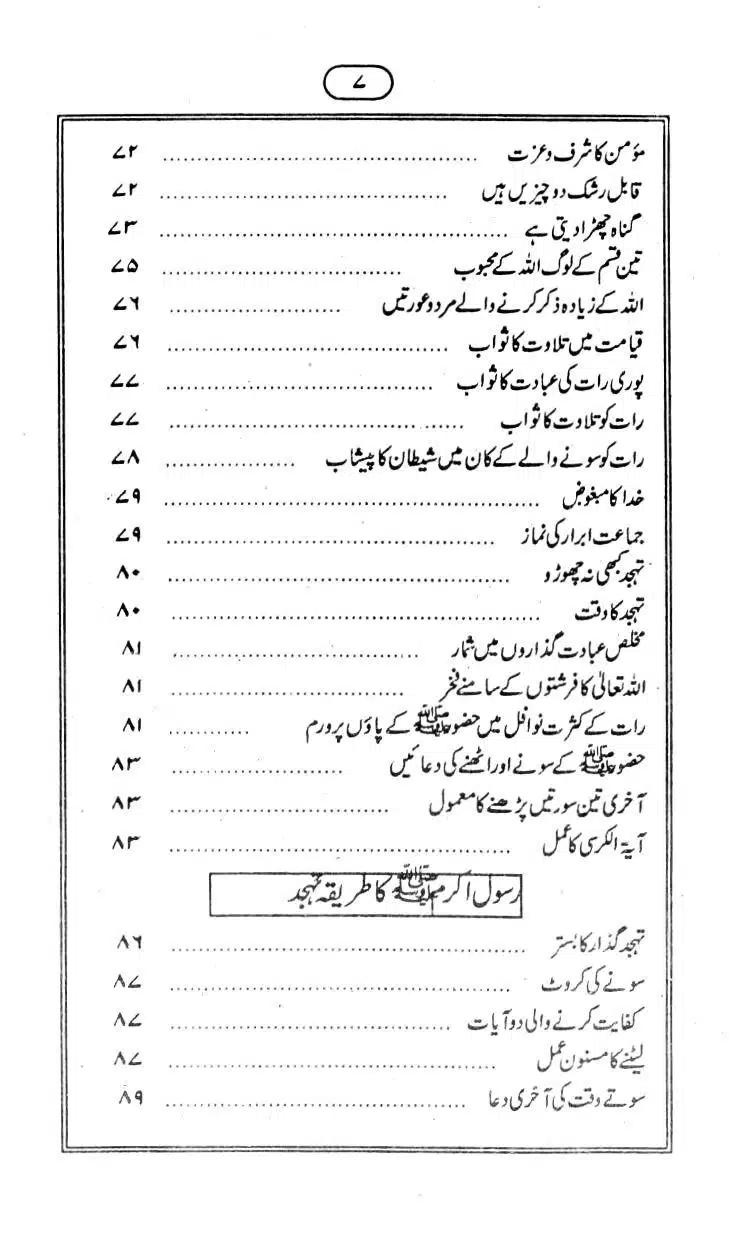 ۷
مؤمن کا شرف وعزت ........................................ ۷۲
قابل رشک دو چیزیں ہیں ........................................ ۷۲
گناہ چھڑا دیتی ہے ........................................ ۷۳
تین قسم کے لوگ اللہ کے محبوب ........................................ ۷۵
اللہ کے زیادہ ذکر کرنے والے مرد و عورتیں ........................................ ۷۶
قیامت میں تلاوت کا ثواب ........................................ ۷۶
پوری رات کی عبادت کا ثواب ........................................ ۷۷
رات کو تلاوت کا ثواب ........................................ ۷۷
رات کو سونے والے کے کان میں شیطان کا پیشاب ........................................ ۷۸
خدا کا مبغوض ........................................ ۷۹
جماعت ابرار کی نماز ........................................ ۷۹
تہجد کبھی نہ چھوڑو ........................................ ۸۰
تہجد کا وقت ........................................ ۸۰
مخلص عبادت گذاروں میں شمار ........................................ ۸۱
اللہ تعالیٰ کا فرشتوں کے سامنے فخر ........................................ ۸۱
رات کے کثرت نوافل میں حضور ﷺ کے پاؤں پر ورم ........................................ ۸۱
حضور ﷺ کے سونے اور اٹھنے کی دعائیں ........................................ ۸۳
آخری تین سورتیں پڑھنے کا معمول ........................................ ۸۳
آیۃ الکرسی کا عمل ........................................ ۸۳
رسول اکرم ﷺ کا طریقہ تہجد
تہجد گذار کا بستر ........................................ ۸۶
سونے کی کروٹ ........................................ ۸۷
کفایت کرنے والی دو آیات ........................................ ۸۷
لیٹنے کا مسنون عمل ........................................ ۸۷
سوتے وقت کی آخری دعا ........................................ ۸۹